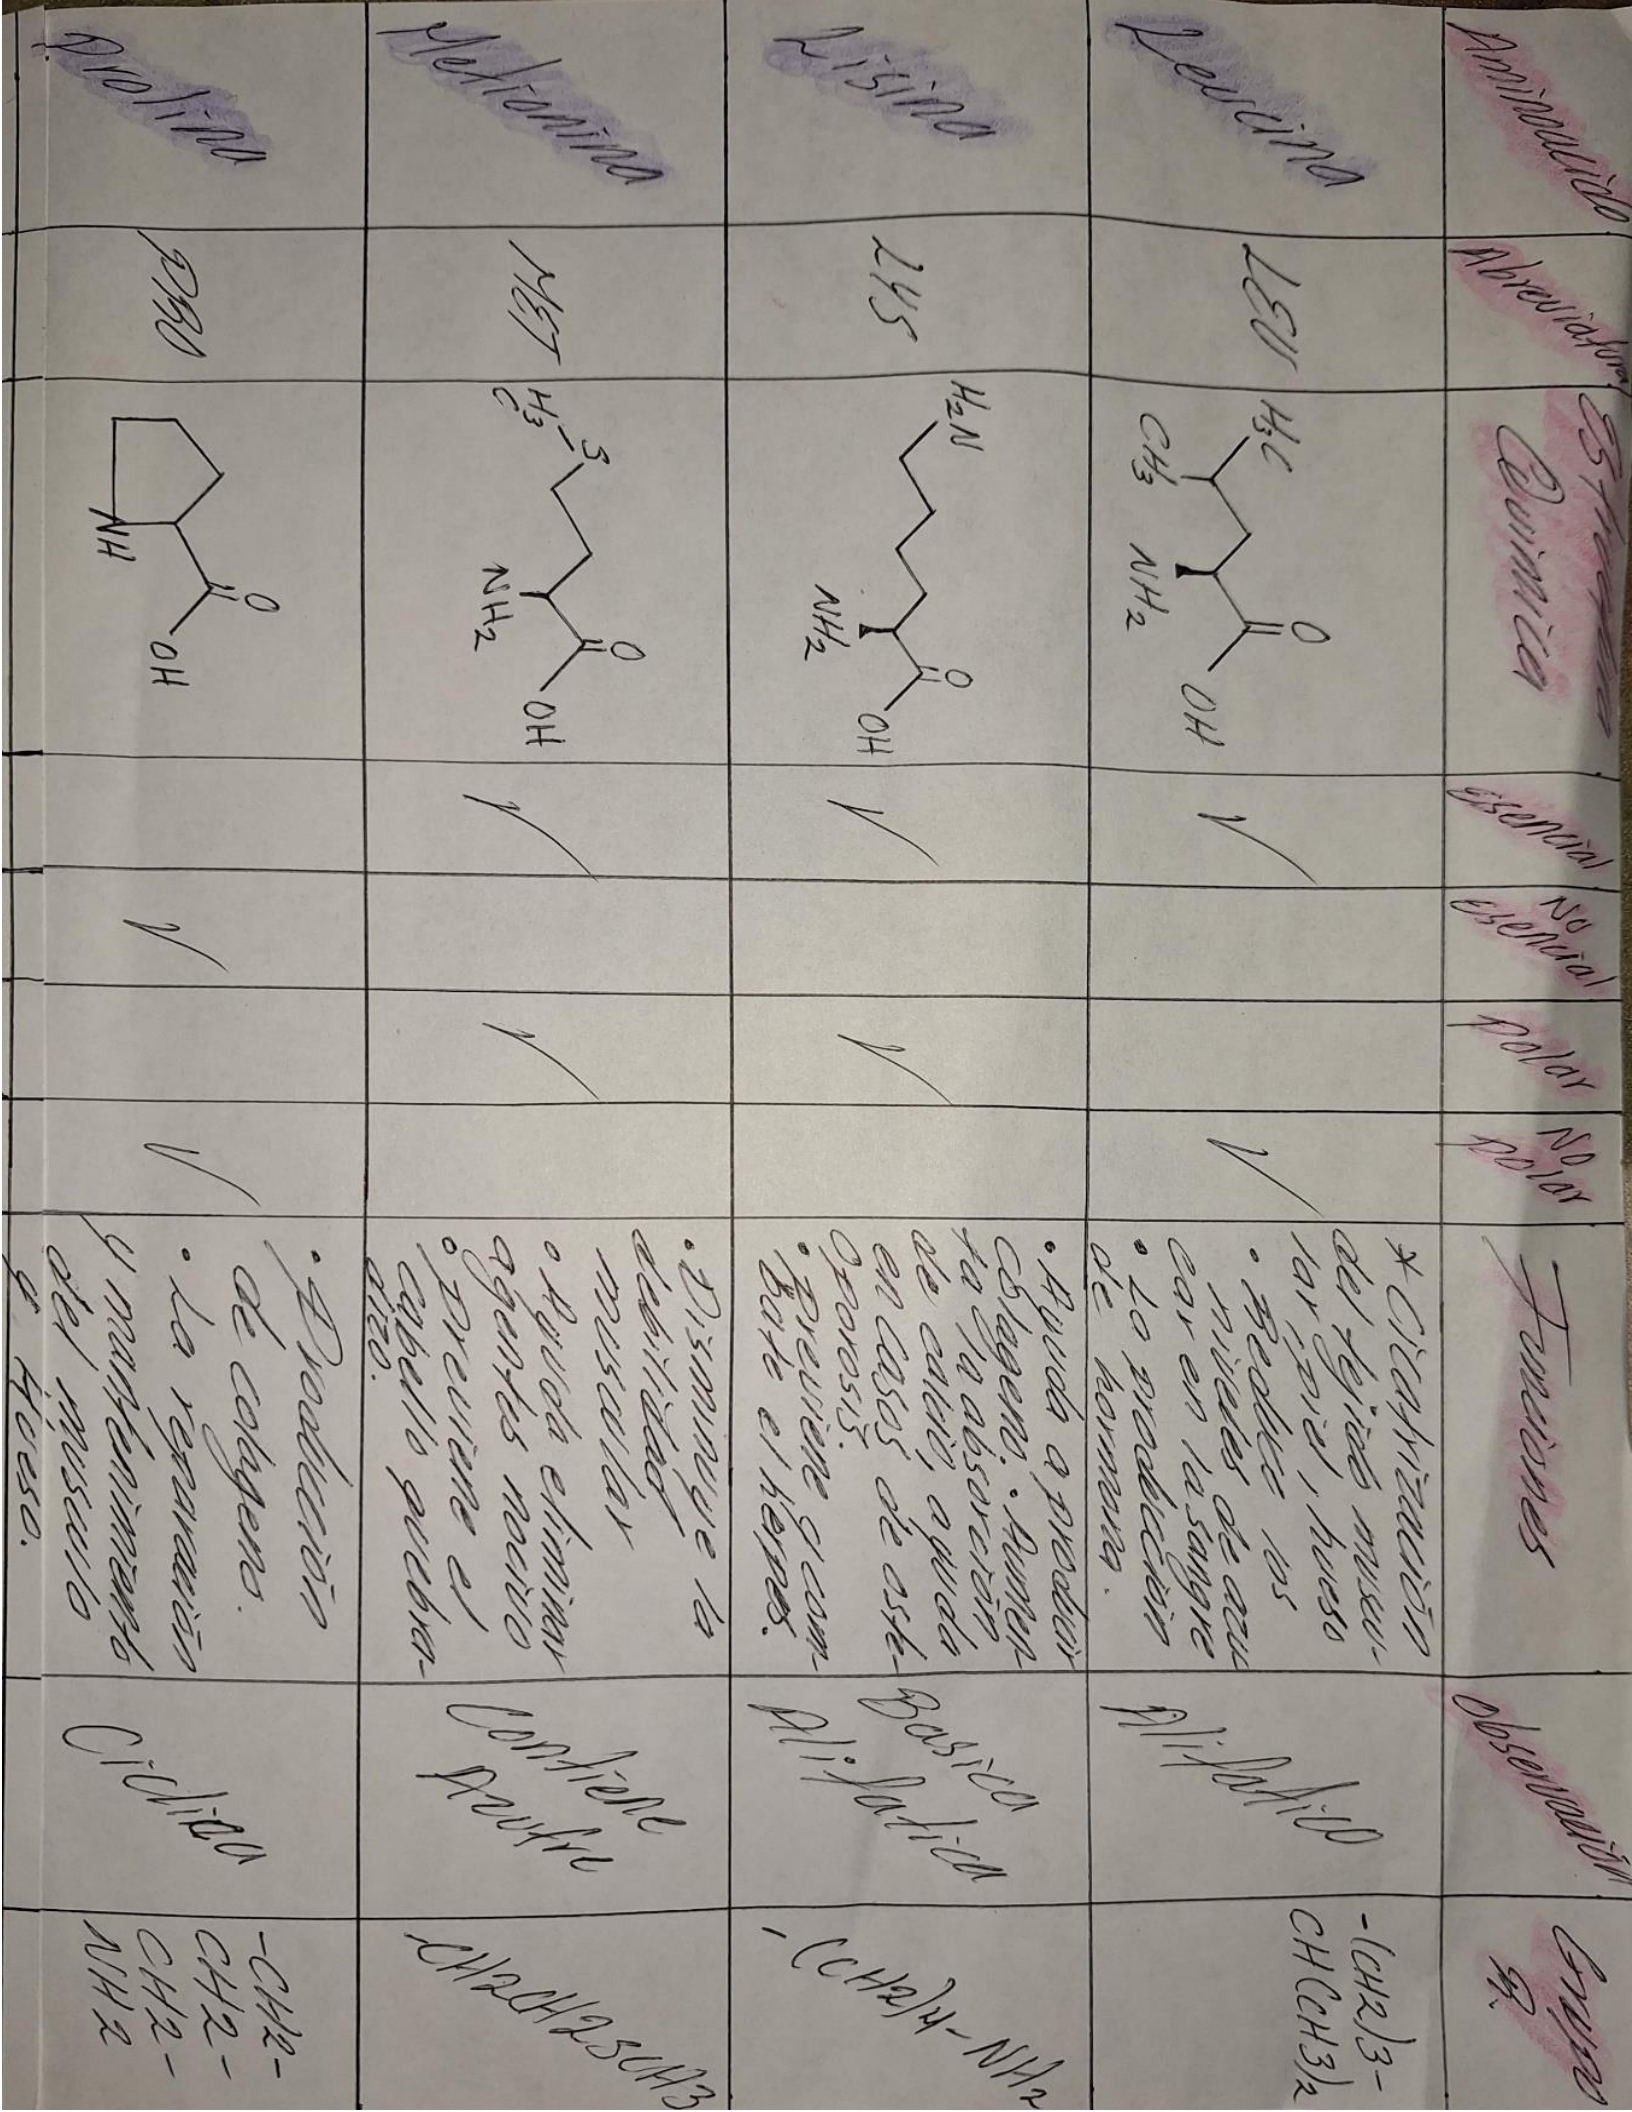 Aminoacido
Abreviatura
Estructura
Quimica
Esencial
No
esencial
polar
No
polar
Funciones
observación
Grupo
R.
Leucina
LEU
H3C
CH3
NH2
O
OH
✓
✓
* Cicatrización
del tejido muscu-
lar, piel, hueso
• Reduce los
niveles de azu
car en la sangre
• La producción
de hormona.
Alifatico
-(CH2)3-
CH(CH3)2
Lisina
LYS
H2N
NH2
O
OH
✓
✓
• Ayuda a producir
Colageno. • Aumen-
ta la absorción
de calcio, ayuda
en casos de oste-
oporosis.
• Previene y com-
bate el herpes.
Basica
Alifatica
-(CH2)4-NH2
Metionina
MET
H3
C
S
NH2
O
OH
✓
✓
• Disminuye la
debilidad
muscular
• Ayuda eliminar
agentes nocivo
• previene el
cabello quebra-
dizo.
Contiene
Azufre
-CH2CH2SCH3
Prolina
PRO
NH
O
OH
✓
✓
• Producción
de colageno.
• La reparación
y mantenimiento
del musculo
y Hueso.
Ciclica
-CH2-
CH2-
CH2-
NH2